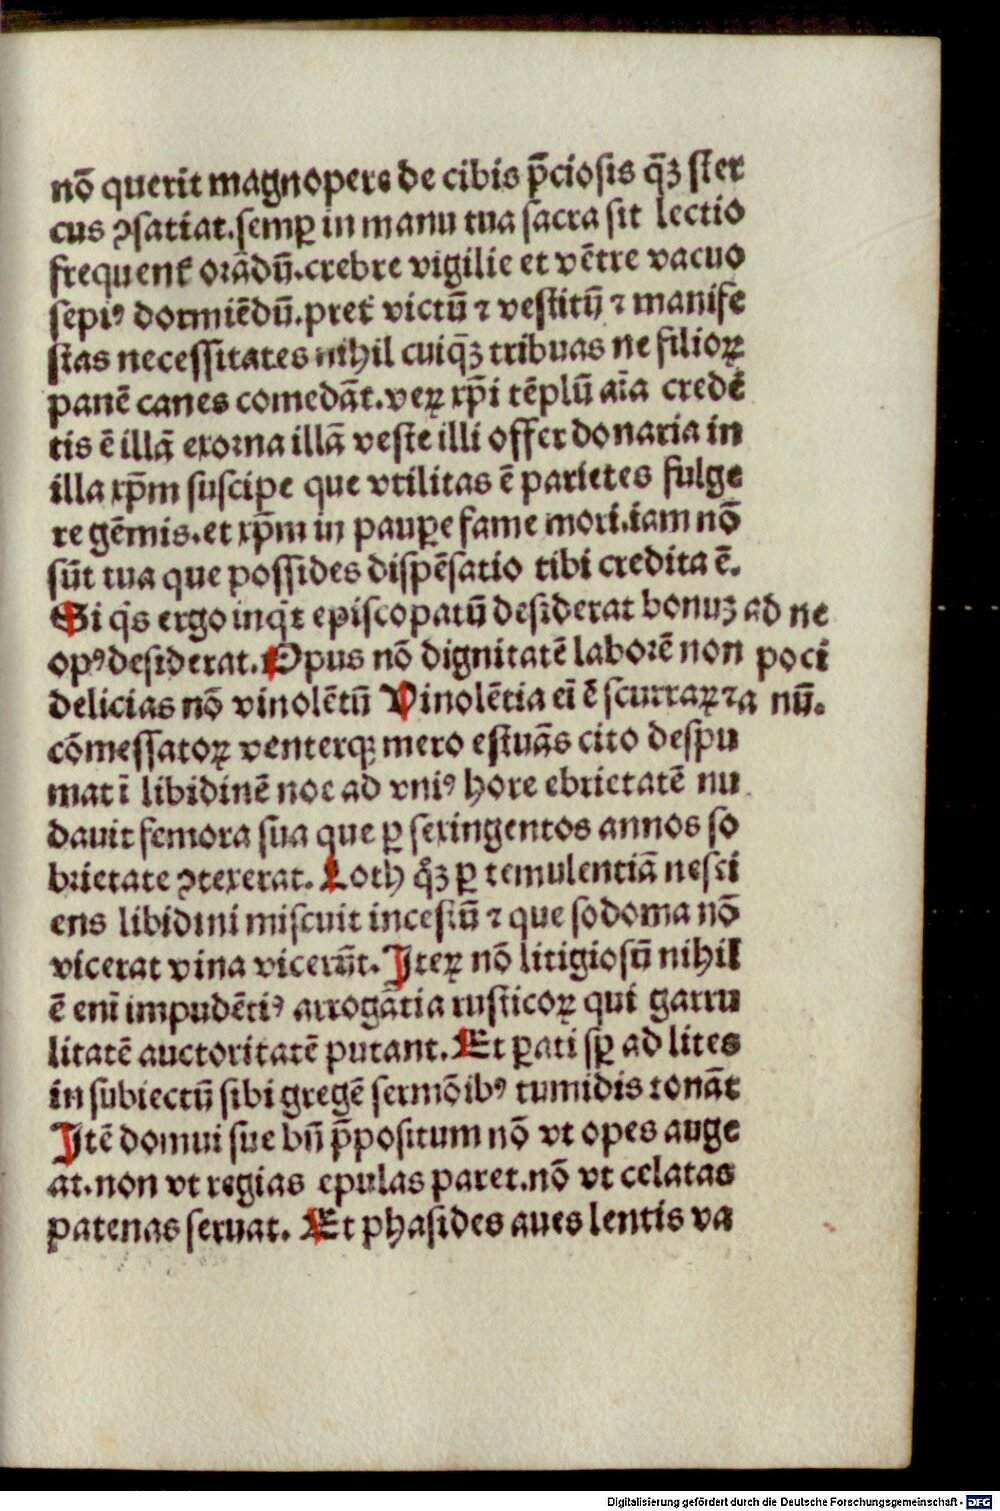 nõ querit magnopere de cibis p̃ciosis q̃ʒ ster
cus ꝯsatiat.semꝑ in manu tua sacra sit lectio
frequent͛ orãdũ.crebre vigilie et vẽtre vacuo
sepiꝰ dormiẽdũ.pret͛ victũ ⁊ vestitũ ⁊ manife
stas necessitates nihil cuiq̃ʒ tribuas ne filioꝝ
panẽ canes comedãt.veꝝ xp̃i tẽplũ aĩa credẽ
tis ẽ illã exorna illã veste illi offer donaria in
illa xp̃m suscipe que vtilitas ẽ parietes fulge
re gẽmis.et xp̃m in pauꝑe fame mori.iam nõ
sũt tua que possides dispẽsatio tibi credita ẽ.
Si q̃s ergo inq̃t episcopatũ desiderat bonuʒ ad ne
opꝰ desiderat. Opus nõ dignitatẽ laborẽ non poci
delicias nõ vinolẽtũ Vinolẽtia eĩ ẽ scurraꝝ ⁊a nũ.
cõmessatoꝝ venterqꝫ mero estuãs cito despu
mat ĩ libidinẽ noe ad vniꝰ hore ebrietatẽ nu
dauit femora sua que ꝑ sexingentos annos so
brietate ꝯtexerat. Loth q̃ʒ ꝑ temulentiã nesci
ens libidini miscuit incestũ ⁊ que sodoma nõ
vicerat vina vicerũt. Iteꝝ nõ litigiosũ nihil
ẽ enĩ impudẽtiꝰ arrogãtia rusticoꝝ qui garru
litatẽ auctoritatẽ putant. Et ꝑati sꝑ ad lites
in subiectũ sibi gregẽ sermõibꝰ tumidis tonãt
Itẽ domui sue bñ p̃positum nõ vt opes auge
at.non vt regias epulas paret.nõ vt celatas
patenas seruat. Et phasides aues lentis va
Digitalisierung gefördert durch die Deutsche Forschungsgemeinschaft - DFG